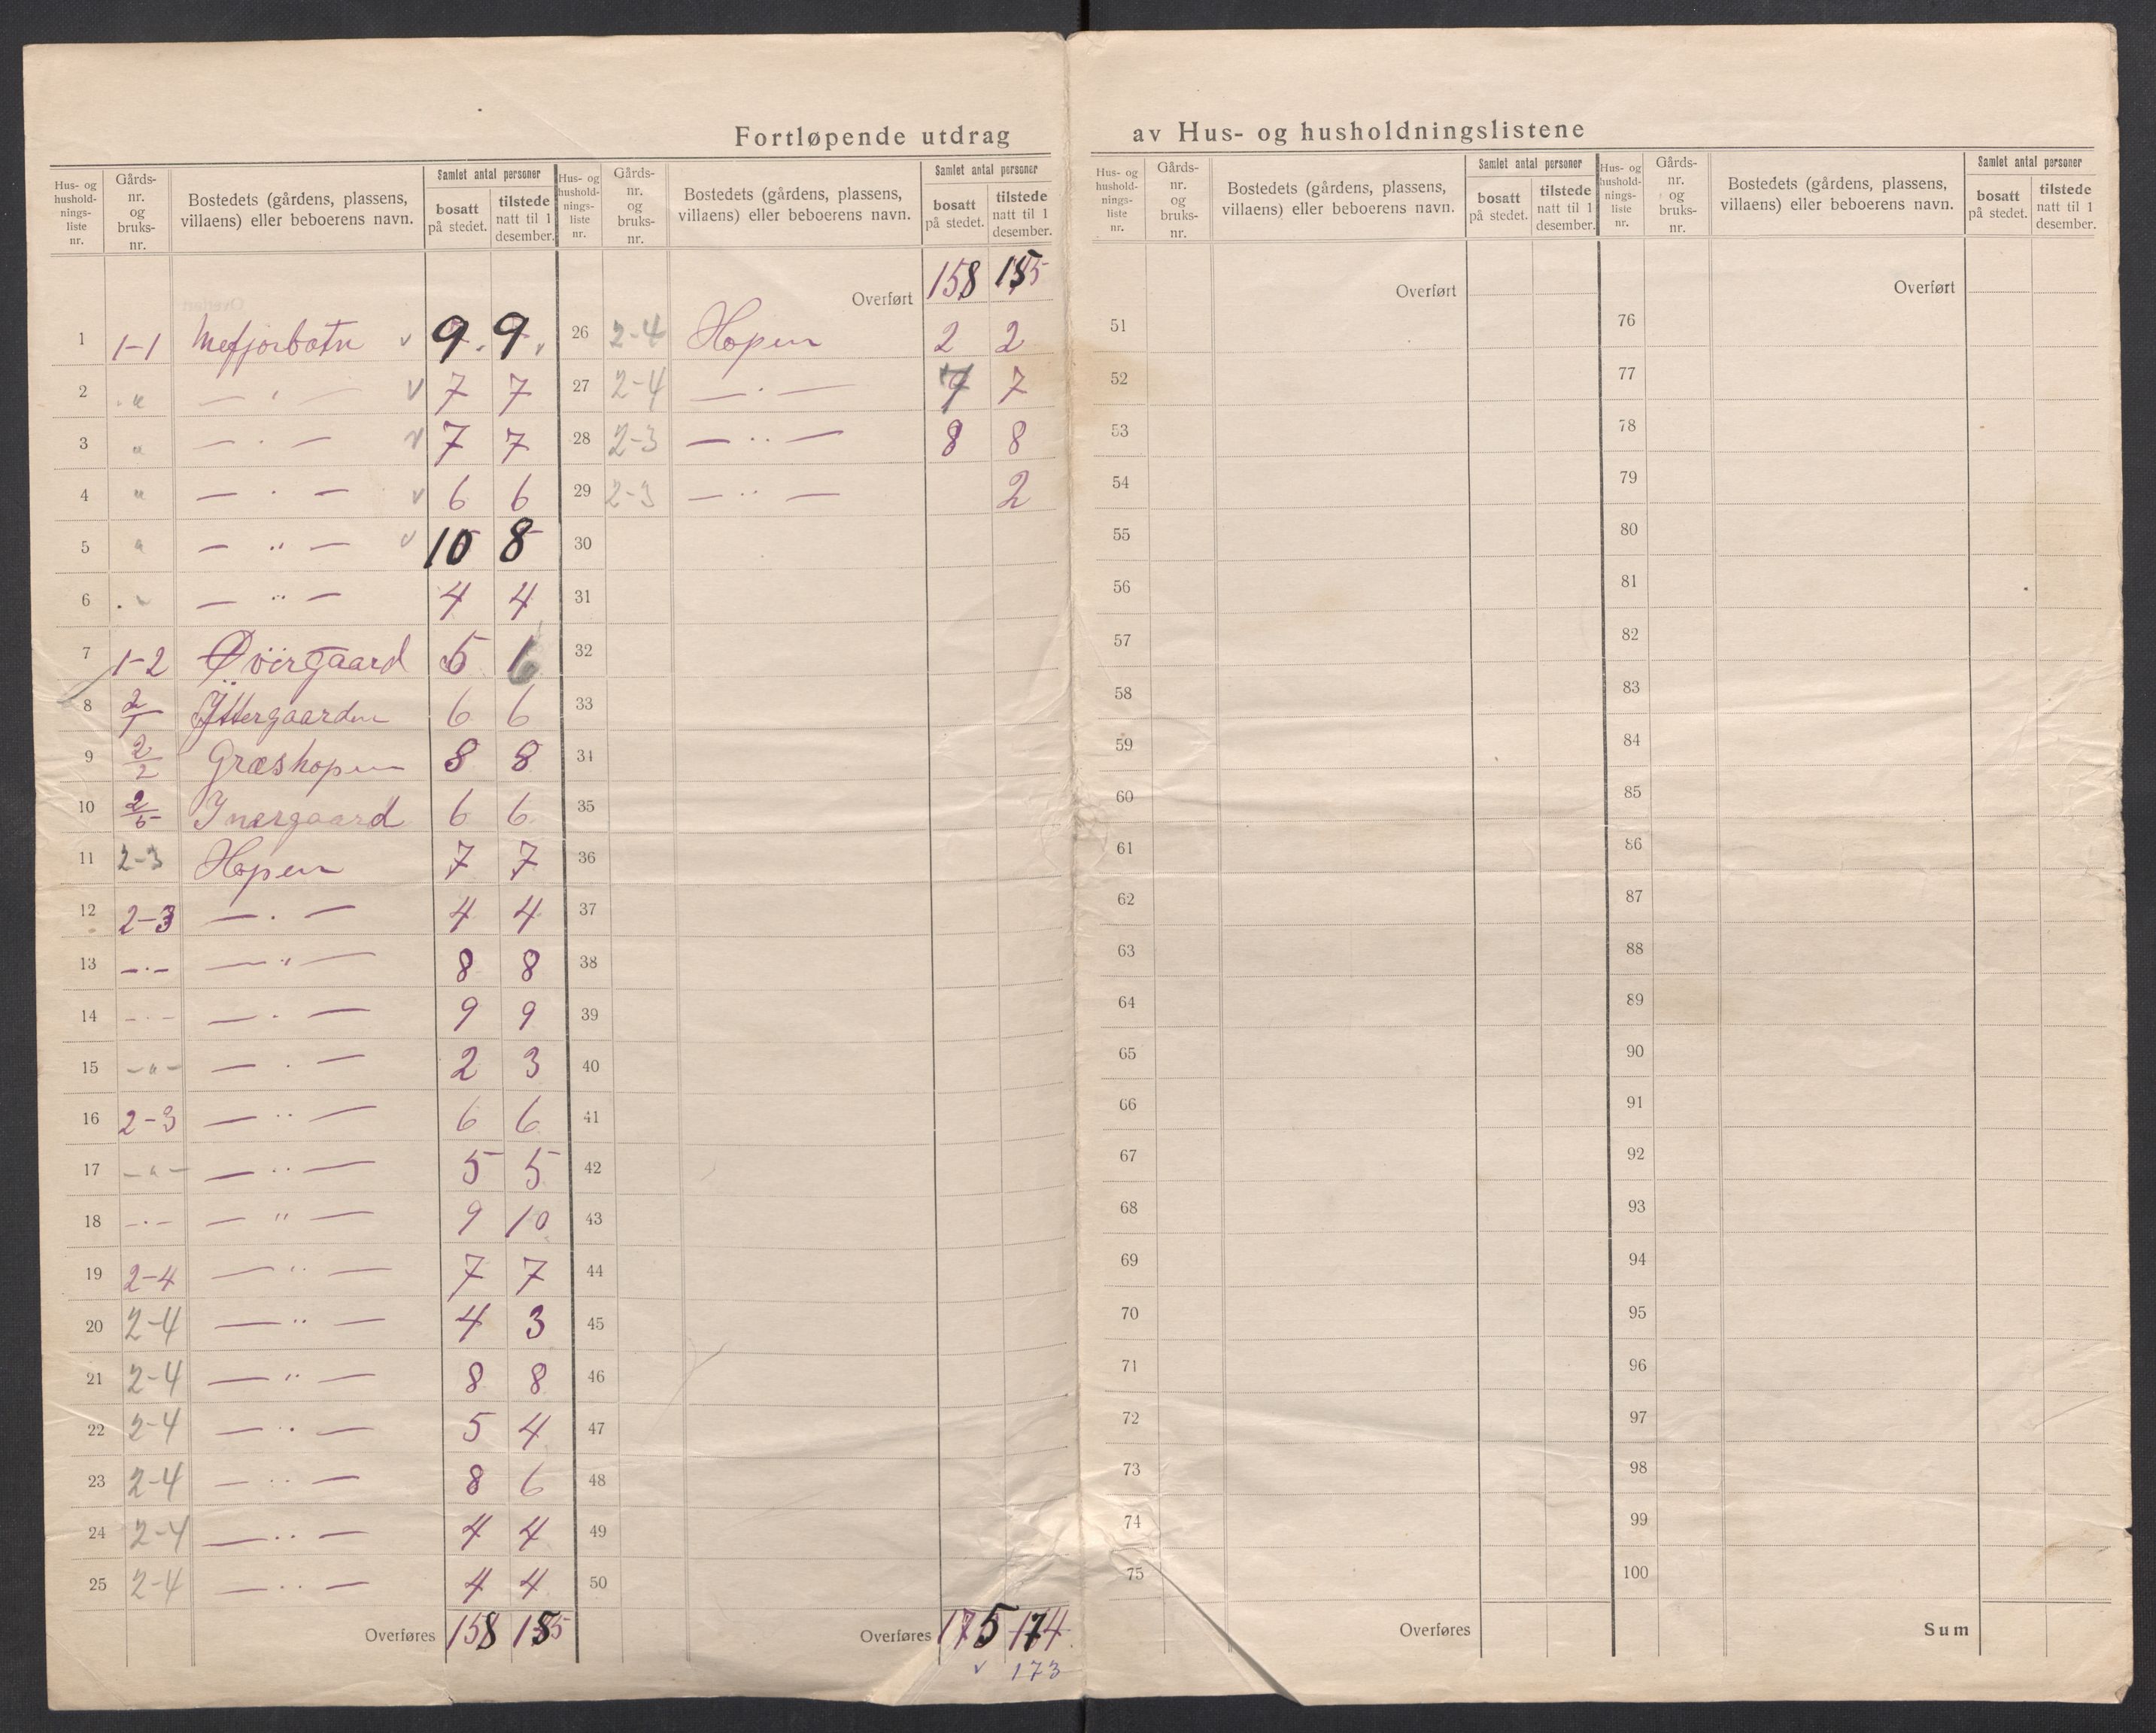 Fortløpende utdrag av Hus- og husholdningslistene
Hus- og husholdningsliste nr. | Gårds-nr. og bruks-nr. | Bostedets (gårdens, plassens, villaens) eller beboerens navn. | Samlet antal personer bosatt på stedet. | tilstede natt til 1 desember.
1 1-1 Mefjorbotn v 9 9
2 " — " — v 7 7
3 " — " — v 7 7
4 " — " — v 6 6
5 " — " — v 10 8
6 " — " — 4 4
7 1-2 Øvërgaard 5 6
8 2/1 Yttergaarden 6 6
9 2/2 Græshopen 8 8
10 2/5 Inergaard 6 6
11 2-3 Hopen 7 7
12 2-3 — " — 4 4
13 — " — — " — 8 8
14 — " — — " — 9 9
15 — " — — " — 2 3
16 2-3 — " — 6 6
17 — " — — " — 5 5
18 — " — — " — 9 10
19 2-4 — " — 7 7
20 2-4 — " — 4 3
21 2-4 — " — 8 8
22 2-4 — " — 5 4
23 2-4 — " — 8 6
24 2-4 — " — 4 4
25 2-4 — " — 4 4
Overføres 158 155
Hus- og husholdningsliste nr. | Gårds-nr. og bruks-nr. | Bostedets (gårdens, plassens, villaens) eller beboerens navn. | Samlet antal personer bosatt på stedet. | tilstede natt til 1 desember.
Overført 158 155
26 2-4 Hopen 2 2
27 2-4 — " — 7 7
28 2-3 — " — 8 8
29 2-3 — " — 2
30
31
32
33
34
35
36
37
38
39
40
41
42
43
44
45
46
47
48
49
50
Overføres 175 174
v 173
Hus- og husholdningsliste nr. | Gårds-nr. og bruks-nr. | Bostedets (gårdens, plassens, villaens) eller beboerens navn. | Samlet antal personer bosatt på stedet. | tilstede natt til 1 desember.
Overført
51
52
53
54
55
56
57
58
59
60
61
62
63
64
65
66
67
68
69
70
71
72
73
74
75
Overføres
Hus- og husholdningsliste nr. | Gårds-nr. og bruks-nr. | Bostedets (gårdens, plassens, villaens) eller beboerens navn. | Samlet antal personer bosatt på stedet. | tilstede natt til 1 desember.
Overført
76
77
78
79
80
81
82
83
84
85
86
87
88
89
90
91
92
93
94
95
96
97
98
99
100
Sum